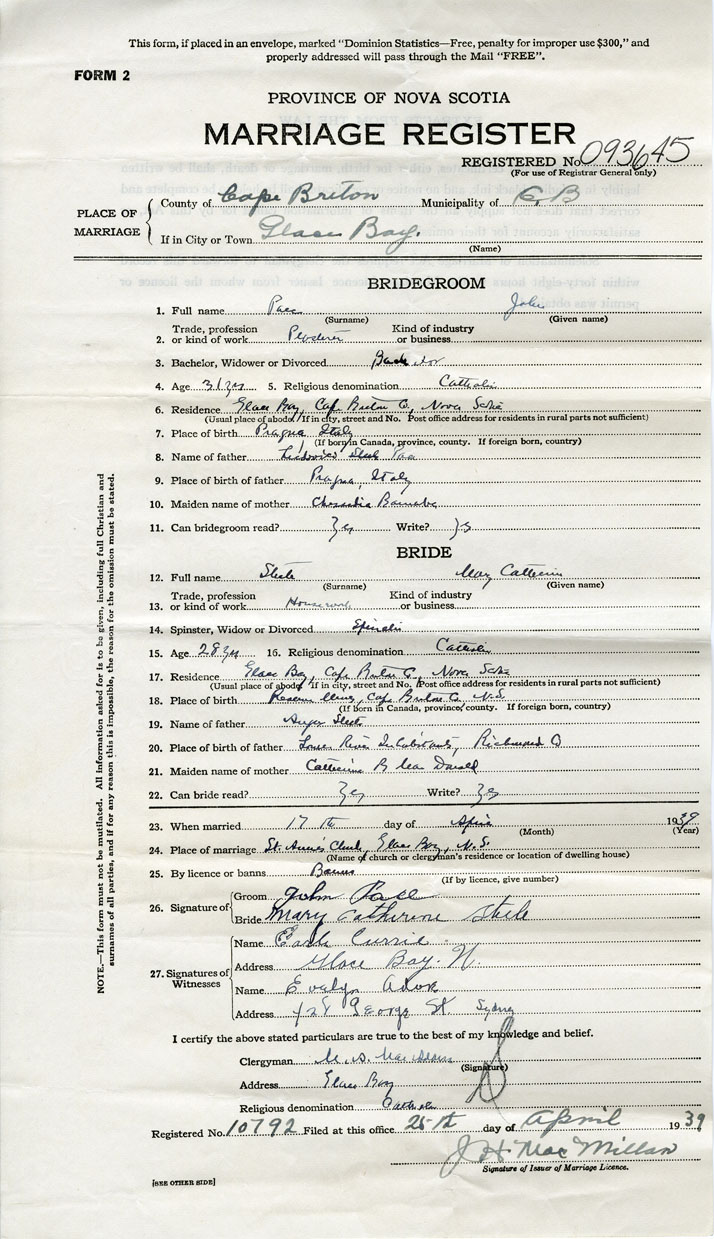 This form, if placed in an envelope, marked "Dominion Statistics—Free, penalty for improper use $300," and
properly addressed will pass through the Mail "FREE".
FORM 2
PROVINCE OF NOVA SCOTIA
MARRIAGE REGISTER
REGISTERED No. 093645
(For use of Registrar General only)
PLACE OF MARRIAGE
County of Cape Breton Municipality of C, B
If in City or Town Glace Bay.
(Name)
BRIDEGROOM
1. Full name John
(Surname) (Given name)
2. Trade, profession or kind of work Plasterer Kind of industry or business
3. Bachelor, Widower or Divorced Bachelor
4. Age 31 yrs 5. Religious denomination Catholic
6. Residence Glace Bay, Cape Breton Co, Nova Scotia
(Usual place of abode. If in city, street and No. Post office address for residents in rural parts not sufficient)
7. Place of birth Italy
(If born in Canada, province, county. If foreign born, country)
8. Name of father
9. Place of birth of father Italy
10. Maiden name of mother
11. Can bridegroom read? Yes Write? Yes
BRIDE
12. Full name Steele Mary Catherine
(Surname) (Given name)
13. Trade, profession or kind of work Housework Kind of industry or business
14. Spinster, Widow or Divorced Spinster
15. Age 28 yrs 16. Religious denomination Catholic
17. Residence Glace Bay, Cape Breton Co, Nova Scotia
(Usual place of abode if in city, street and No. Post office address for residents in rural parts not sufficient)
18. Place of birth Reserve Mines, Cape Breton Co, N.S.
(If born in Canada, province, county. If foreign born, country)
19. Name of father Steele
20. Place of birth of father River Inhabitants, Richmond Co
21. Maiden name of mother Catherine B
22. Can bride read? Yes Write? Yes
23. When married 17 th day of April 1939
(Month) (Year)
24. Place of marriage St. Anne's Church, Glace Bay, N.S.
(Name of church or clergyman's residence or location of dwelling house)
25. By licence or banns Banns
(If by licence, give number)
26. Signature of
Groom John
Bride Mary Catherine Steele
27. Signatures of Witnesses
Name Currie
Address Glace Bay. N.
Name Evelyn
Address George St. Sydney
I certify the above stated particulars are true to the best of my knowledge and belief.
Clergyman
(Signature)
Address Glace Bay
Religious denomination Catholic
Registered No. 10792 Filed at this office 25th day of April 1939
J H MacMillan
Signature of Issuer of Marriage Licence.
[SEE OTHER SIDE]
NOTE.—This form must not be mutilated. All information asked for is to be given, including full Christian and
surnames of all parties, and if for any reason this is impossible, the reason for the omission must be stated.